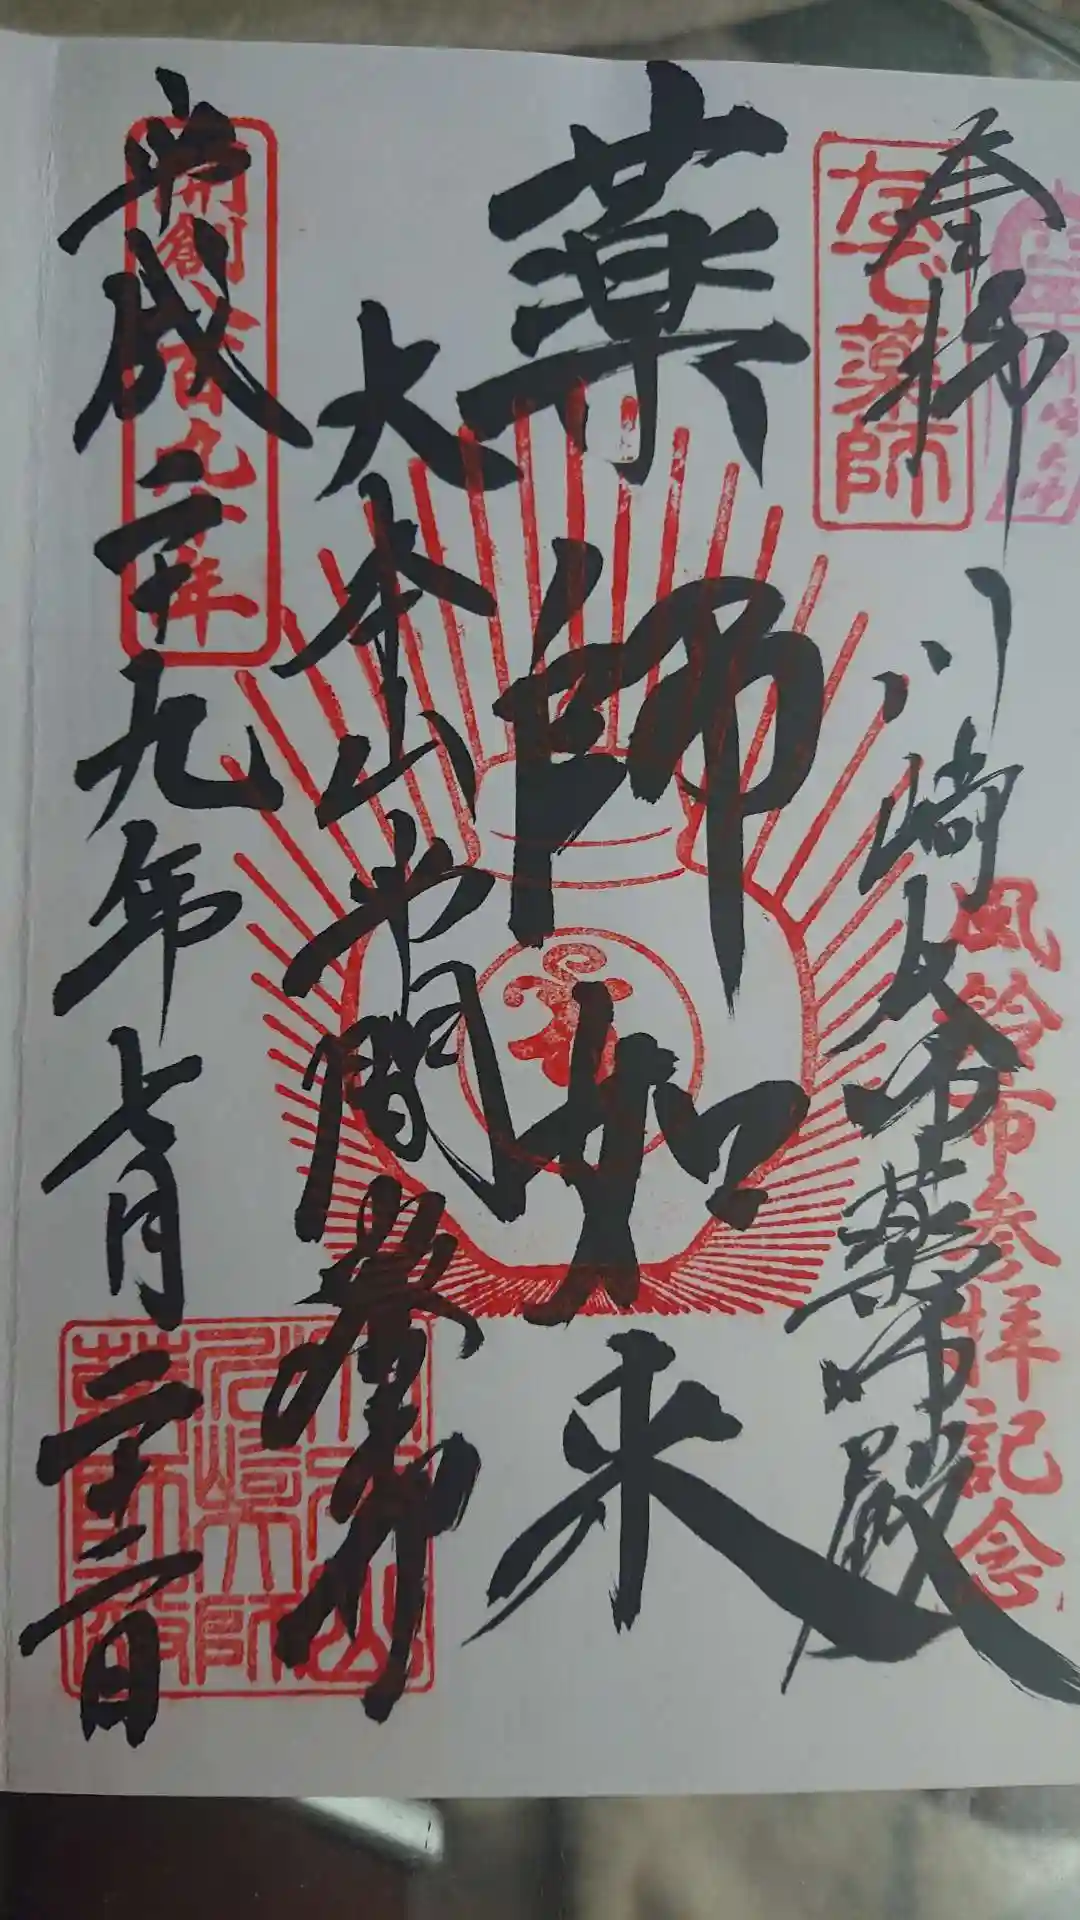 風鈴市参拝記念
奉拝 川崎大師薬師殿
なで薬師
薬師如来
大本山 平間寺
平成二十九年七月二十二日
開創八百九十年
川崎大師